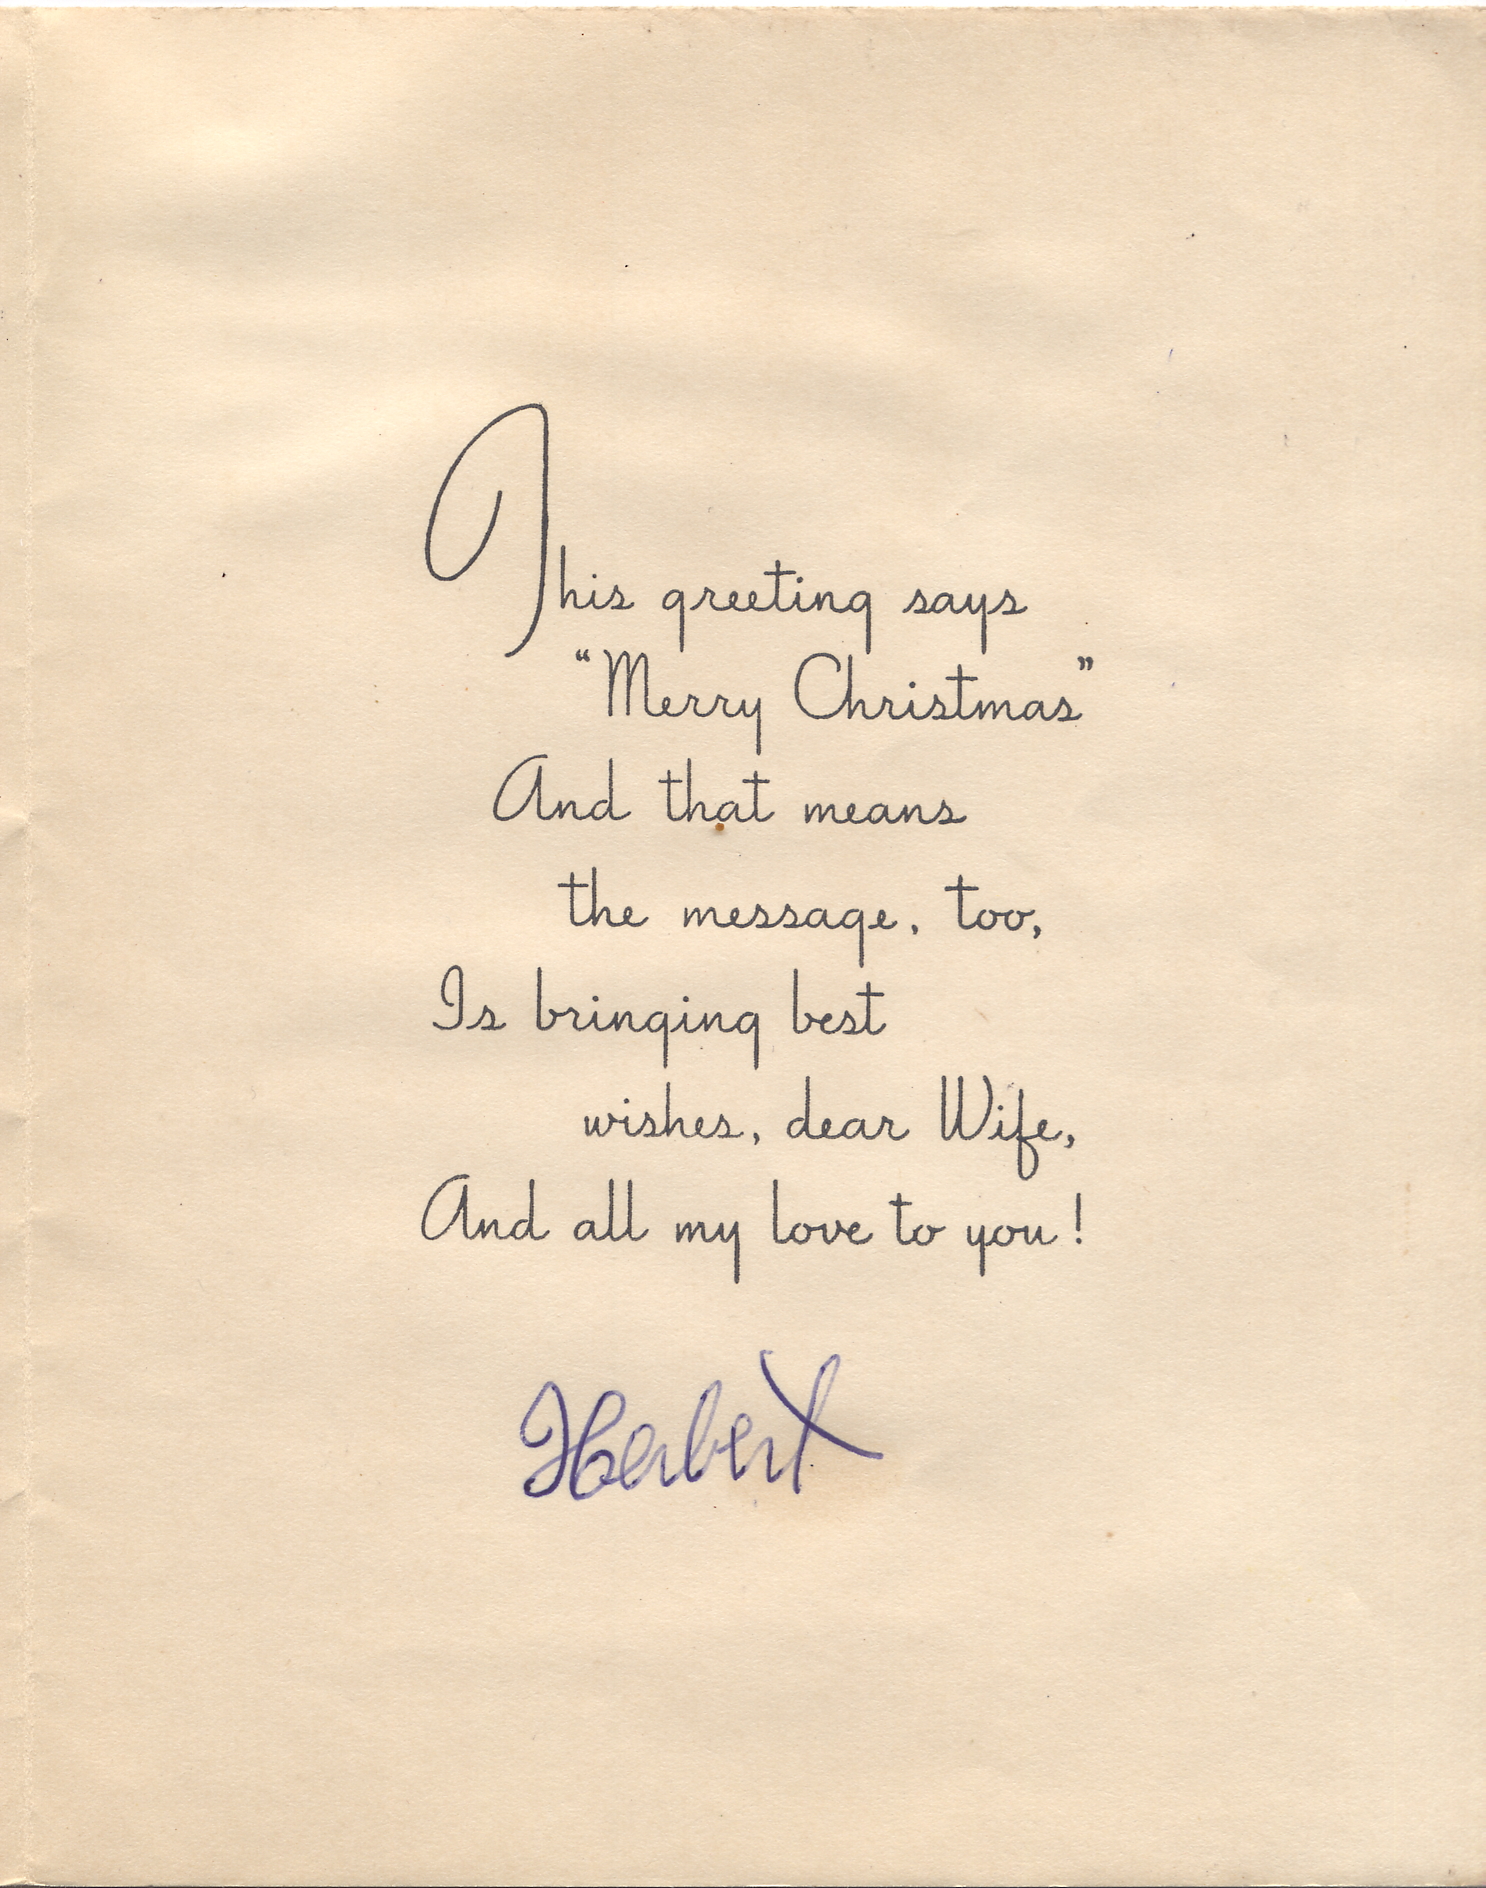 This greeting says
“Merry Christmas”
And that means
the message, too,
Is bringing best
wishes, dear Wife,
And all my love to you!
Herbert